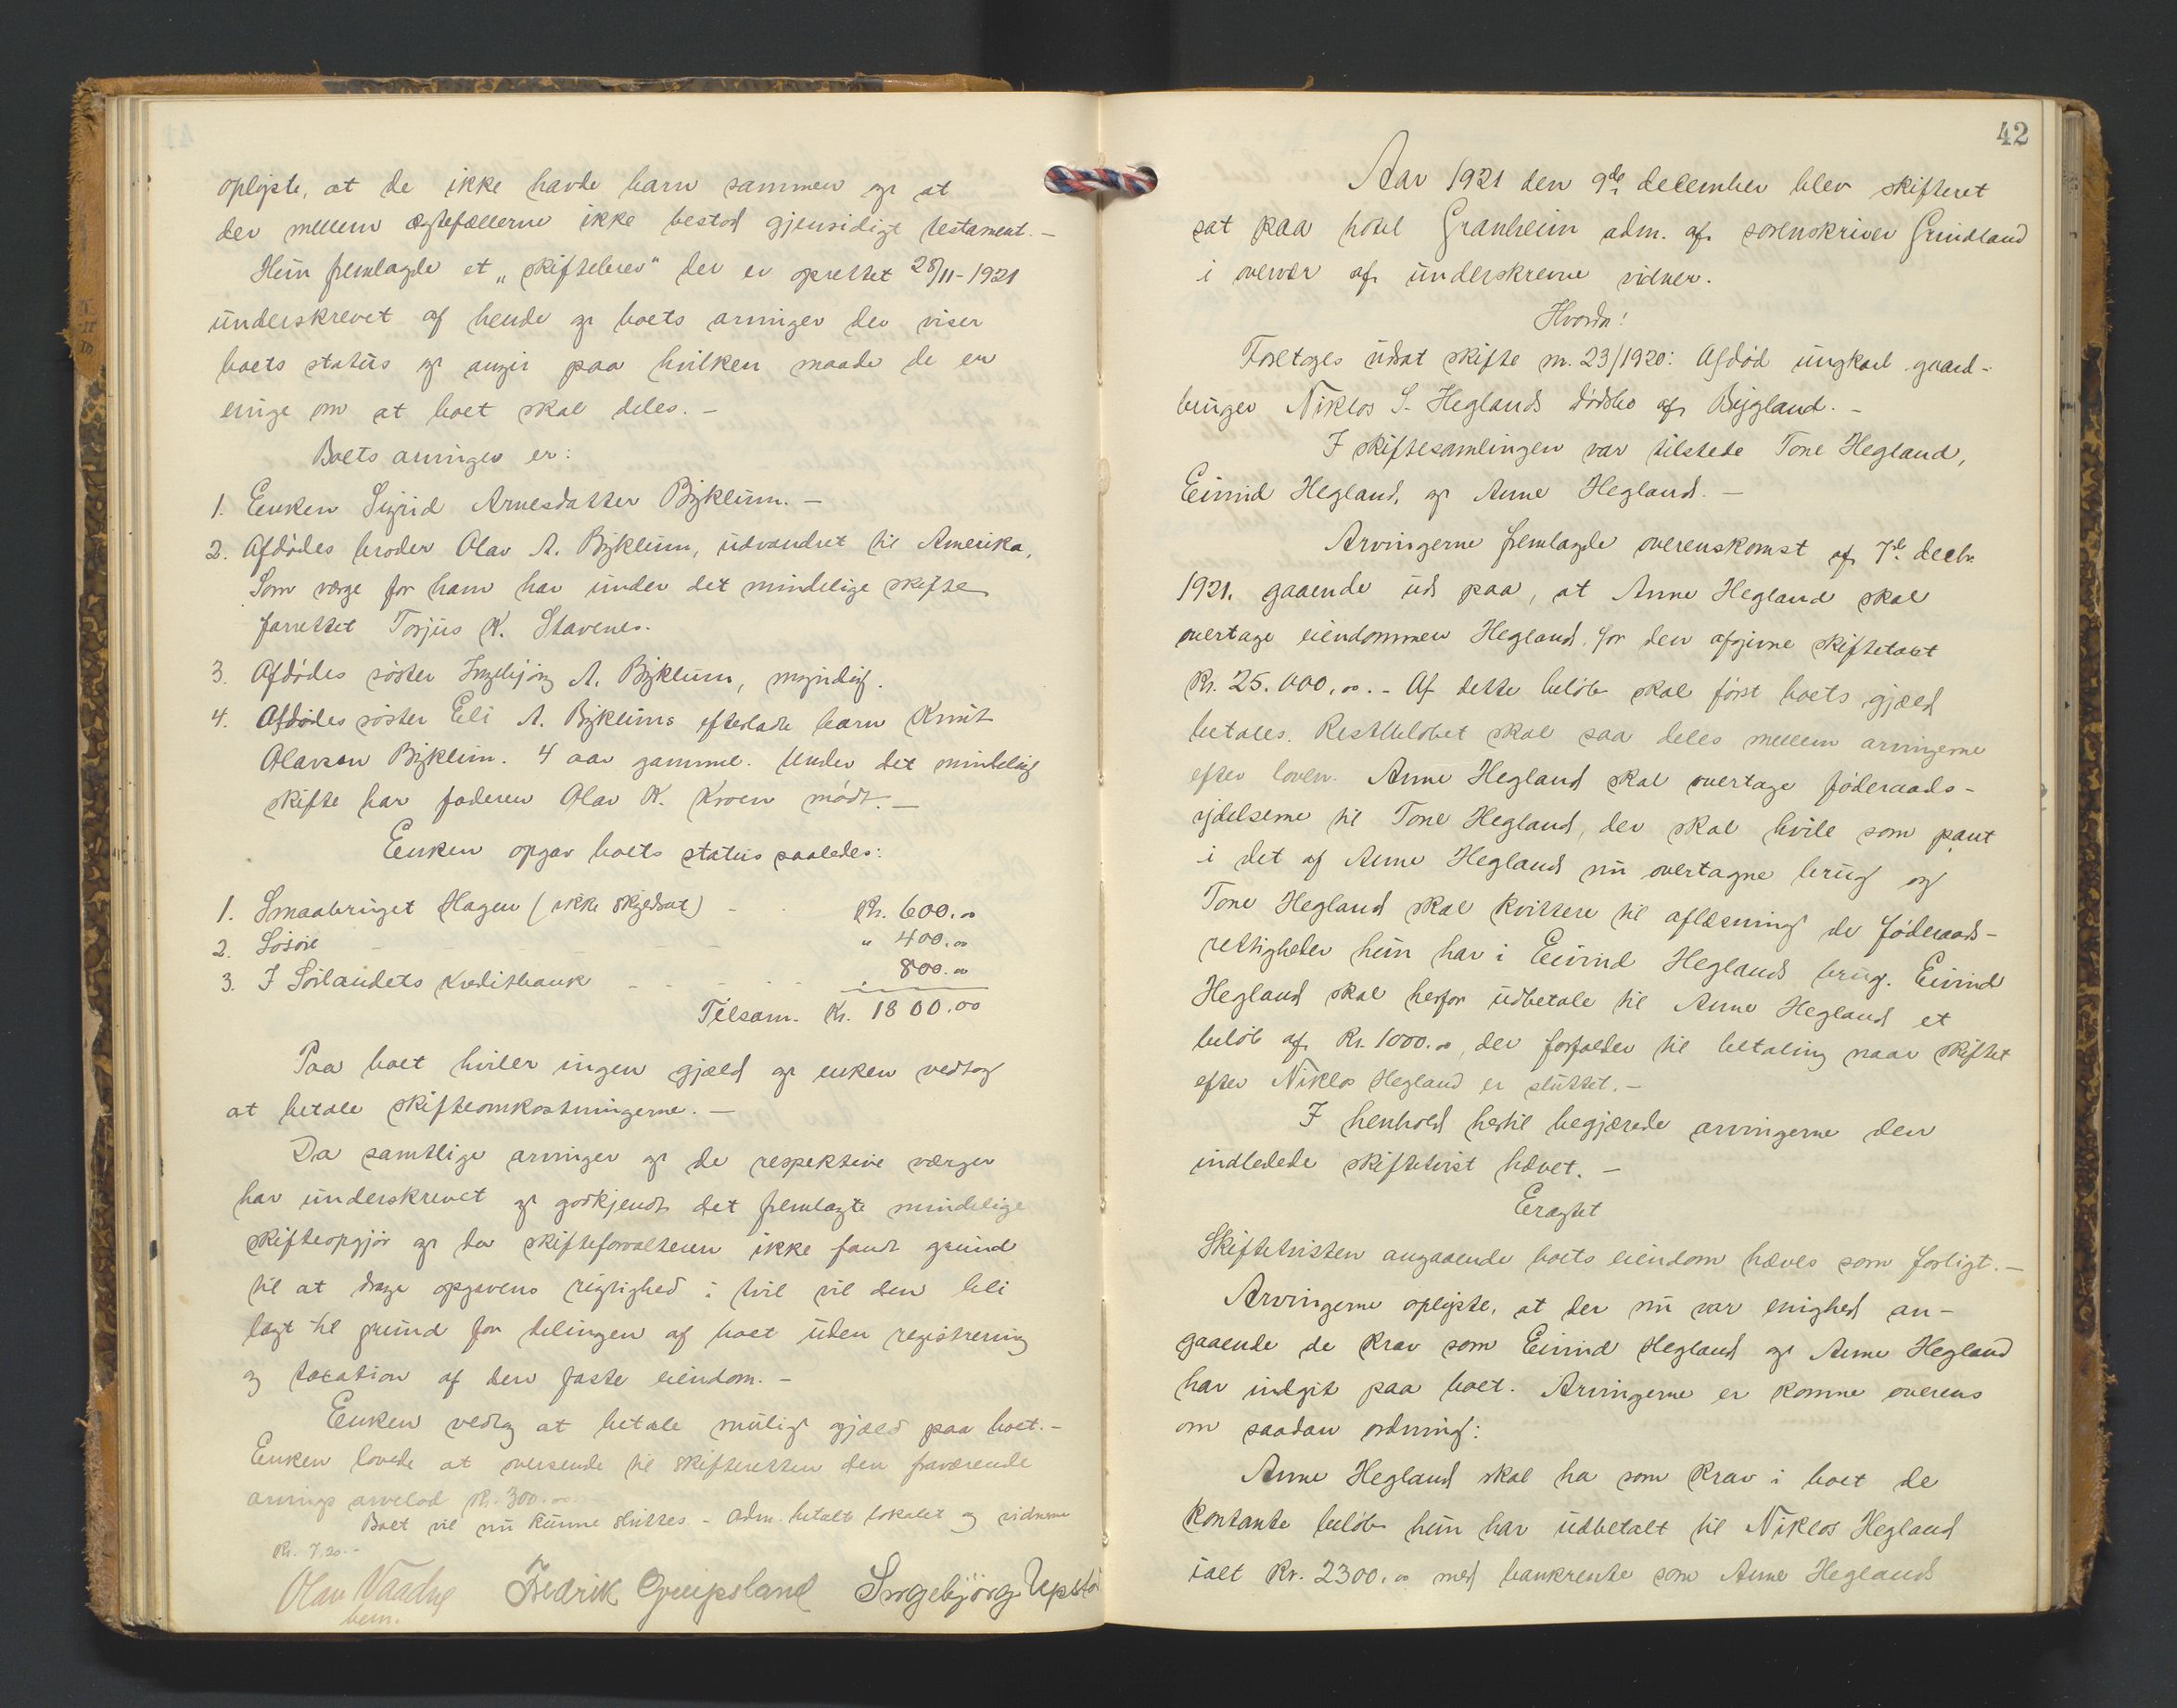 oplyste, at de ikke havde barn sammen og at
der mellem ægtefællerne ikke bestod gjensidigt testament. -
Hun fremlagde et "skiftebrev" der er oprettet 28/11-1921
underskrevet af hende og boets arvinger der viser
boets status og angir paa hvilken maade de er
enige om at boet skal deles. -
Boets arvinger er:
1. Enken Sigrid Arnesdatter Bykleim. -
2. Afdødes broder Olav A. Bykleim, udvandret til Amerika.
Som verge for ham har under det mindelige skifte
farrettet Torjus K. Stavenes.
3. Afdødes søster Ingebjørg A. Bykleim, myndig.
4. Afdødes søster Eli A. Bykleims efterladte barn Knut
Olavson Bykleim. 4 aar gammel. Under det mindelig
skifte har faderen Olav K. Kroen mødt. -
Enken opgav boets status saaledes:
1. Smaabruget Hagen (ikke skyldsat) - Kr. 600.00
2. Løsøre - " 400.00
3. I Sørlandets Kreditbank - 800.00
Tilsam. Kr. 1800.00
Paa boet hviler ingen gjæld og enken vedtog
at betale skifteomkostningerne. -
Da samtlige arvinger og de respektive verger
har underskrevet og godkjendt det fremlagte mindelige
skifteopgjør og da skifteforvalteren ikke fandt grund
til at drage opgavens rigtighed i tvil vil den bli
lagt til grund for delingen af boet uden registrering
og taxation af den faste eiendom. -
Enken vedtog at betale mulig gjæld paa boet. -
Enken lovede at oversende til skifteretten den fraværende
arvings arvelod Kr. 300.00
Boet vil nu kunne sluttes - Adm. betalt lokalet og vidnerne
Kr. 7.20. -
Olav Fredrik Greipsland Ingebjørg
42
Aar 1921 den 9de december blev skifteret
sat paa hotel Granheim adm. af sorenskriver Grindland
i overvær af underskrevne vidner.
Hvorda!
Foretoges udsat skifte nr. 23/1920: Afdød ungkarl gaard-
bruger Niklos S. Heglands dødsbo af Bygland. -
I skiftesamlingen var tilstede Tone Hegland,
Eivind Hegland, og Anne Hegland. -
Arvingerne fremlagde overenskomst af 7de decbr.
1921. gaaende ud paa, at Anne Hegland skal
overtage eiendommen Hegland for den afgivne skiftetakst
Kr. 25.000.00. - Af dette beløb skal først boets gjæld
betales. Restbeløbet skal saa deles mellem arvingerne
efter loven. Anne Hegland skal overtage føderaads-
ydelserne til Tone Hegland, der skal hvile som pant
i det af Anne Hegland nu overtagne brug og
Tone Hegland skal kvittere til aflæsning de føderaads-
rettigheder hun har i Eivind Heglands brug. Eivind
Hegland skal herfor udbetale til Anne Hegland et
beløb af Kr. 1000.00, der forfalder til betaling naar skiftet
efter Niklos Hegland er sluttet. -
I henhold hertil begjærede arvingerne den
indledede skiftetvist hævet. -
Eragtet
Skiftetvisten angaaende boets eiendom hæves som forligt. -
Arvingerne oplyste, at der nu var enighed an-
gaaende de krav som Eivind Hegland og Anne Hegland
har indgit paa boet. Arvingerne er komne overens
om saadan ordning:
Anne Hegland skal ha som krav i boet de
kontante beløb hun har udbetalt til Niklos Hegland
ialt Kr. 2300.00 med bankrente som Anne Heglands